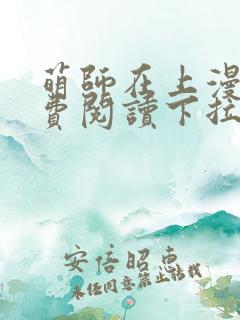 萌師在上漫
費閱讀下拉
安倍昭惠
未任同意禁止轉載